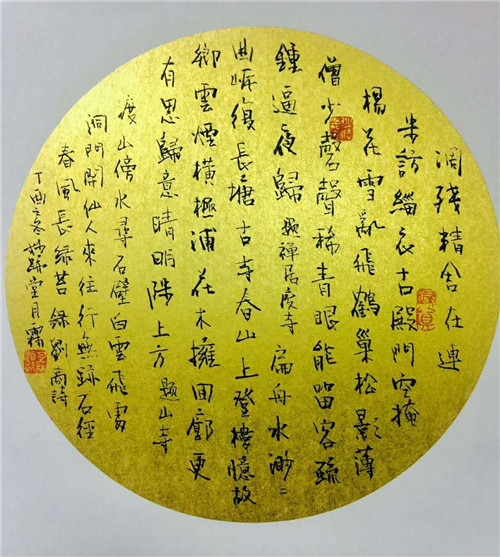 凋殘精舍在連
來訪緇衣古殿門空掩
楊花雪亂飛鶴巢松影薄
僧少磬聲稀青眼能留客疏
鍾逼夜歸 題禪居廢寺 扁舟水渺〻
曲岸復長塘古寺春山上登樓憶故
鄉雲煙橫極浦花木擁回廊更
有思歸意晴明陟上方 題山寺
度山傍水尋石壁白雲飛處
洞門開仙人來往行無跡石徑
春風長綠苔 錄劉商詩
丁酉之冬妙跡堂月霜